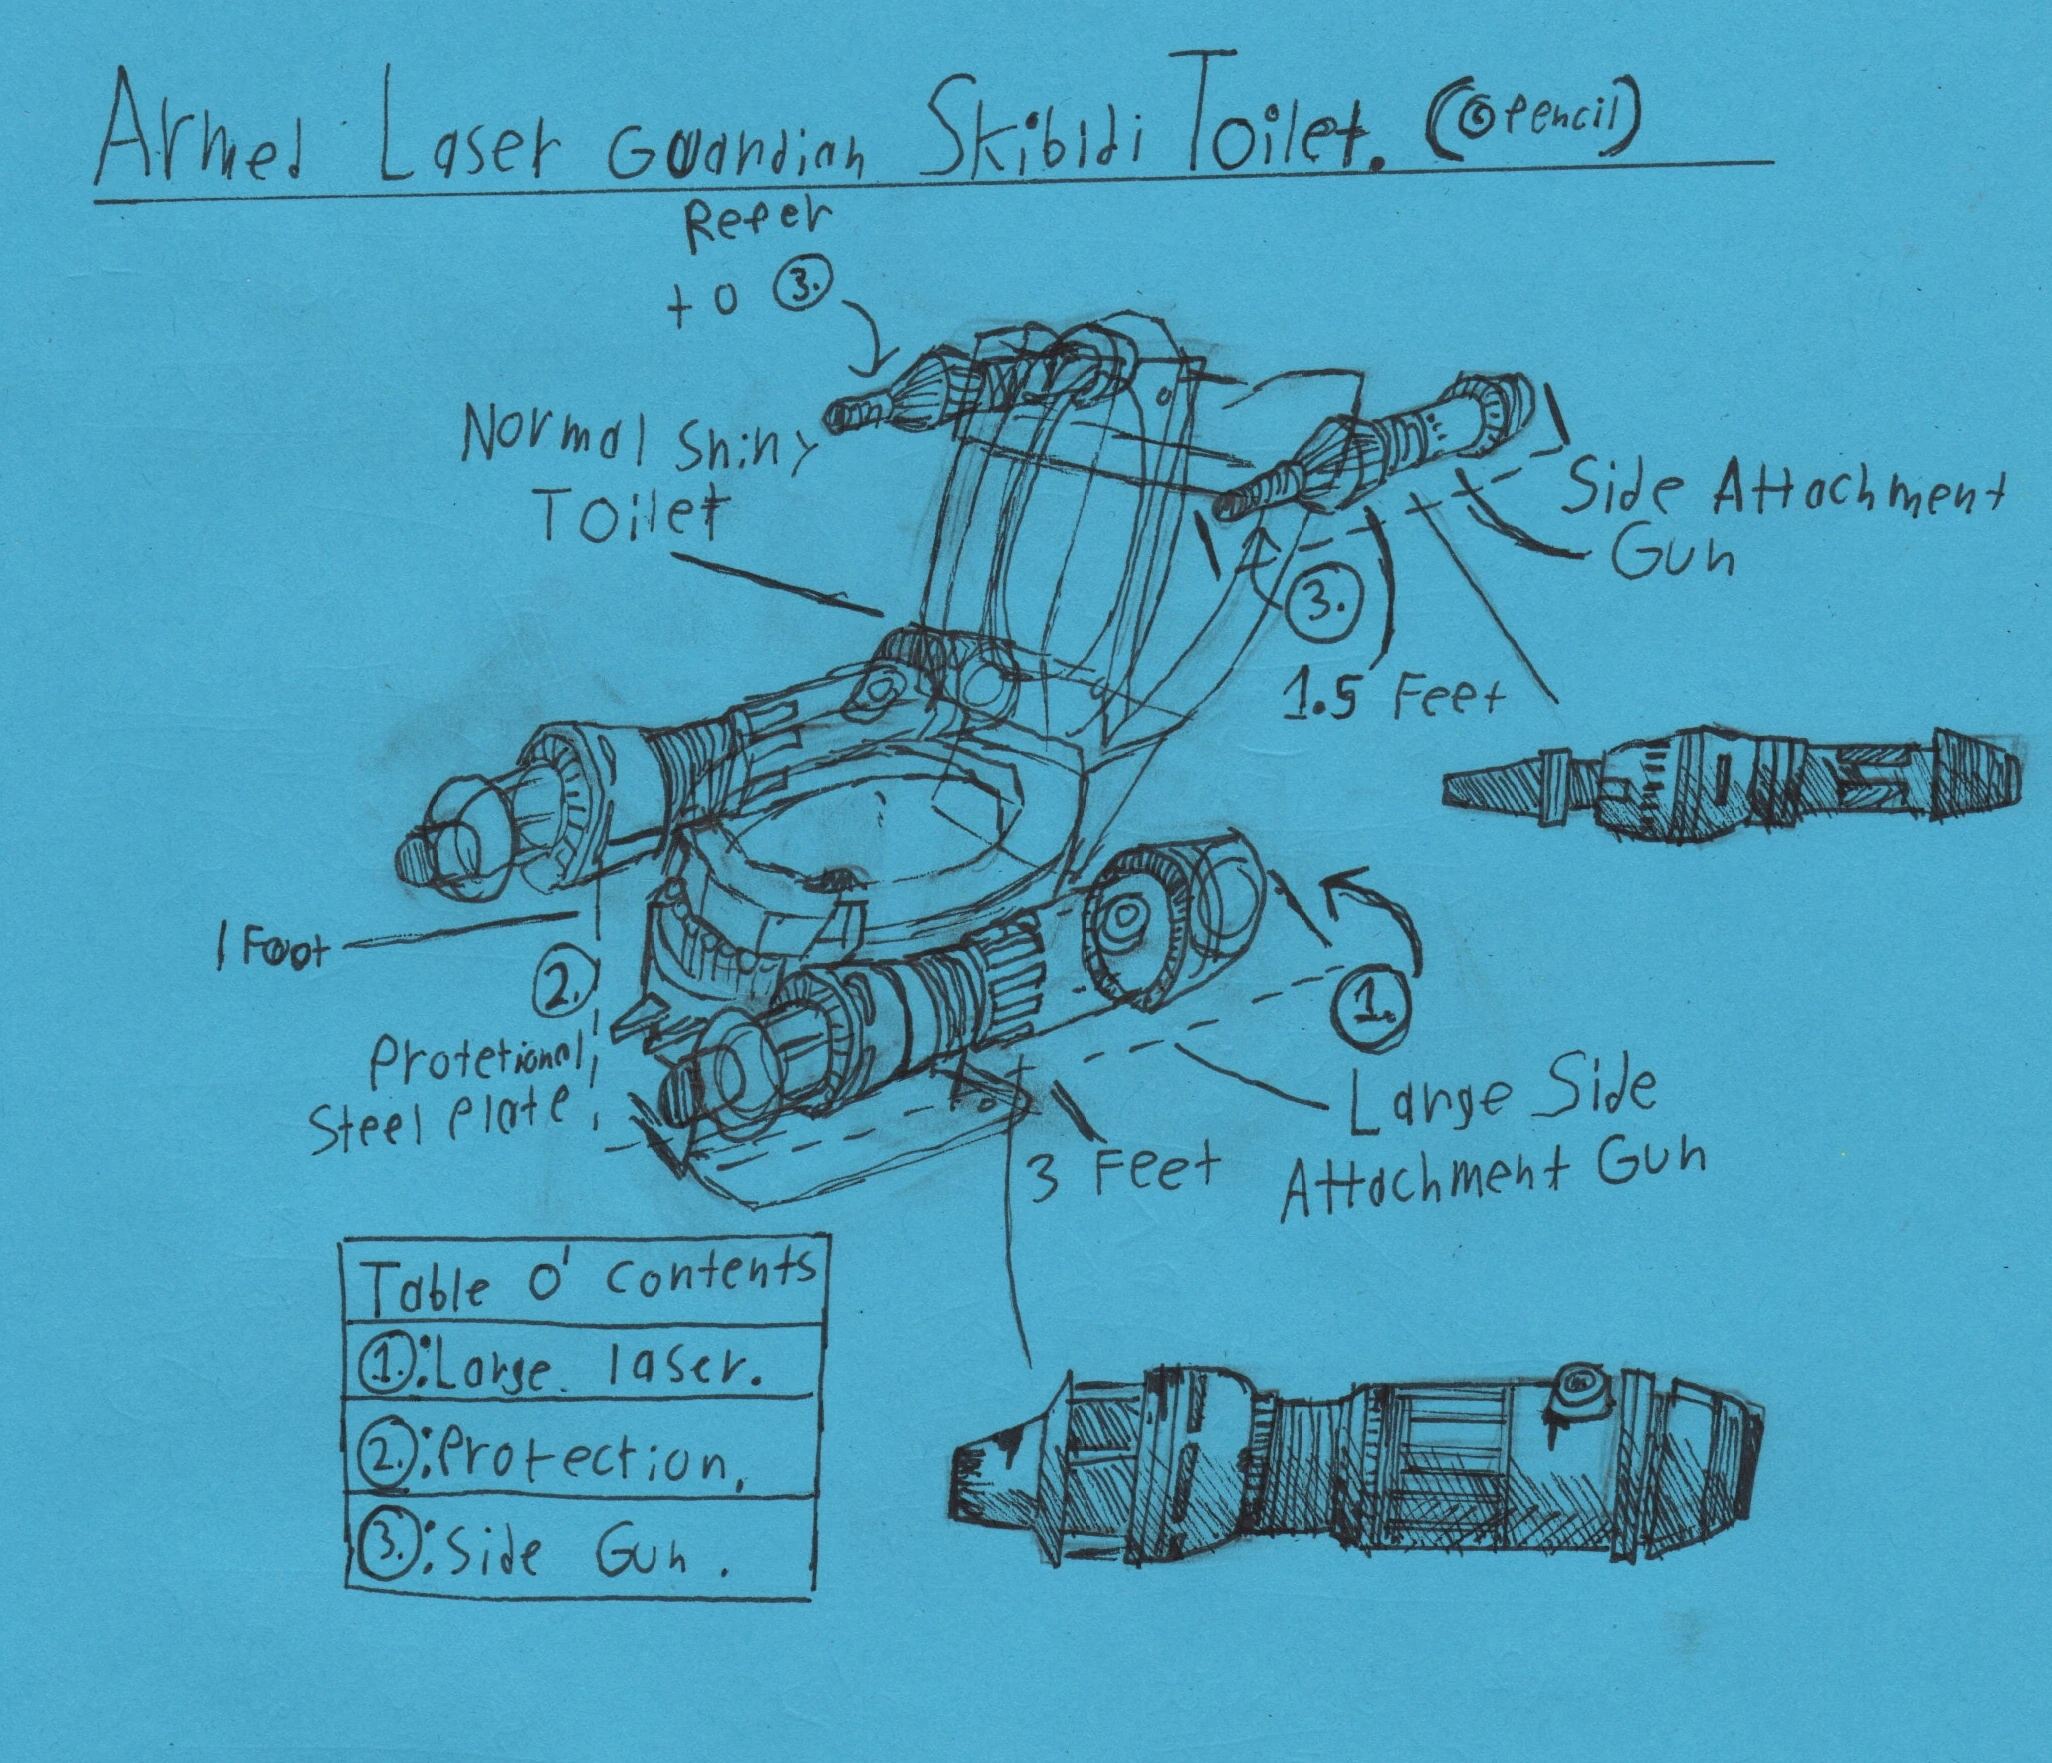 Armed Laser Guardian Skibidi Toilet. (© Pencil)
Refer
to 3.
Normal Shiny
Toilet
Side Attachment
Gun
3.
1.5 Feet
1 Foot
2.
Protetional
Steel Plate
1.
Large Side
Attachment Gun
3 Feet
Table O' Contents
1.: Large laser.
2.: Protection.
3.: Side Gun.